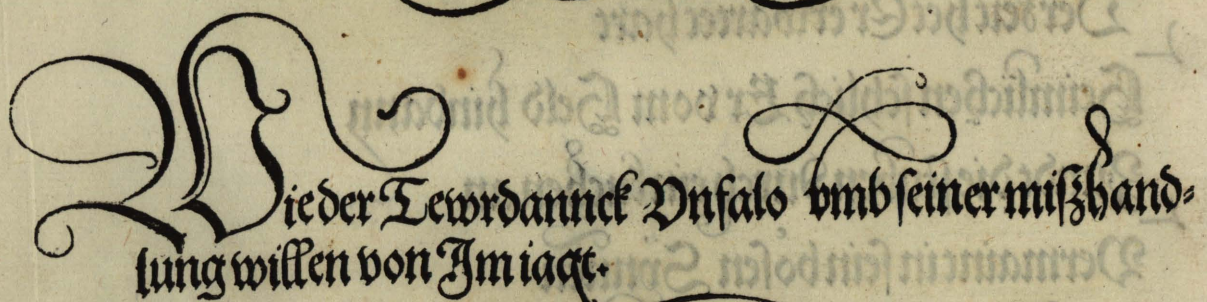 Wie der Tewrdannck Vnfalo vmb seiner miszhand-
lung willen von Im iagt.